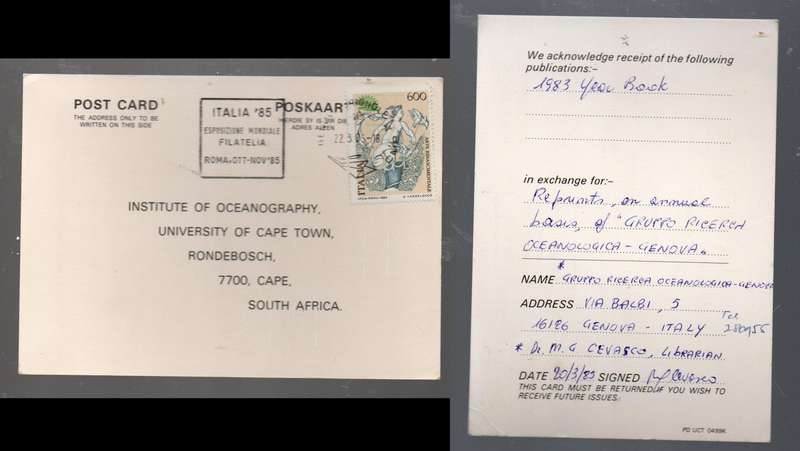 POST CARD
THE ADDRESS ONLY TO BE
WRITTEN ON THIS SIDE
ITALIA '85
ESPOSIZIONE MONDIALE
FILATELIA
ROMA.OTT-NOV'85
POSKAART
HIERDIE SY IS VIR DIE
ADRES ALLEEN
22.3.85-18
600
ITALIA
INSTITUTE OF OCEANOGRAPHY,
UNIVERSITY OF CAPE TOWN,
RONDEBOSCH,
7700, CAPE,
SOUTH AFRICA.
We acknowledge receipt of the following
publications:-
1983 Year Book
in exchange for:-
Reprints, on annual
basis, of "GRUPPO RICERCA
OCEANOLOGICA - GENOVA"
*
NAME GRUPPO RICERCA OCEANOLOGICA-GENOVA
ADDRESS VIA BALBI, 5
16126 GENOVA - ITALY Tel 280955
* Dr. M. G. CEVASCO, LIBRARIAN
DATE 20/3/85 SIGNED Cevasco
THIS CARD MUST BE RETURNED IF YOU WISH TO
RECEIVE FUTURE ISSUES.
PD UCT 0499K